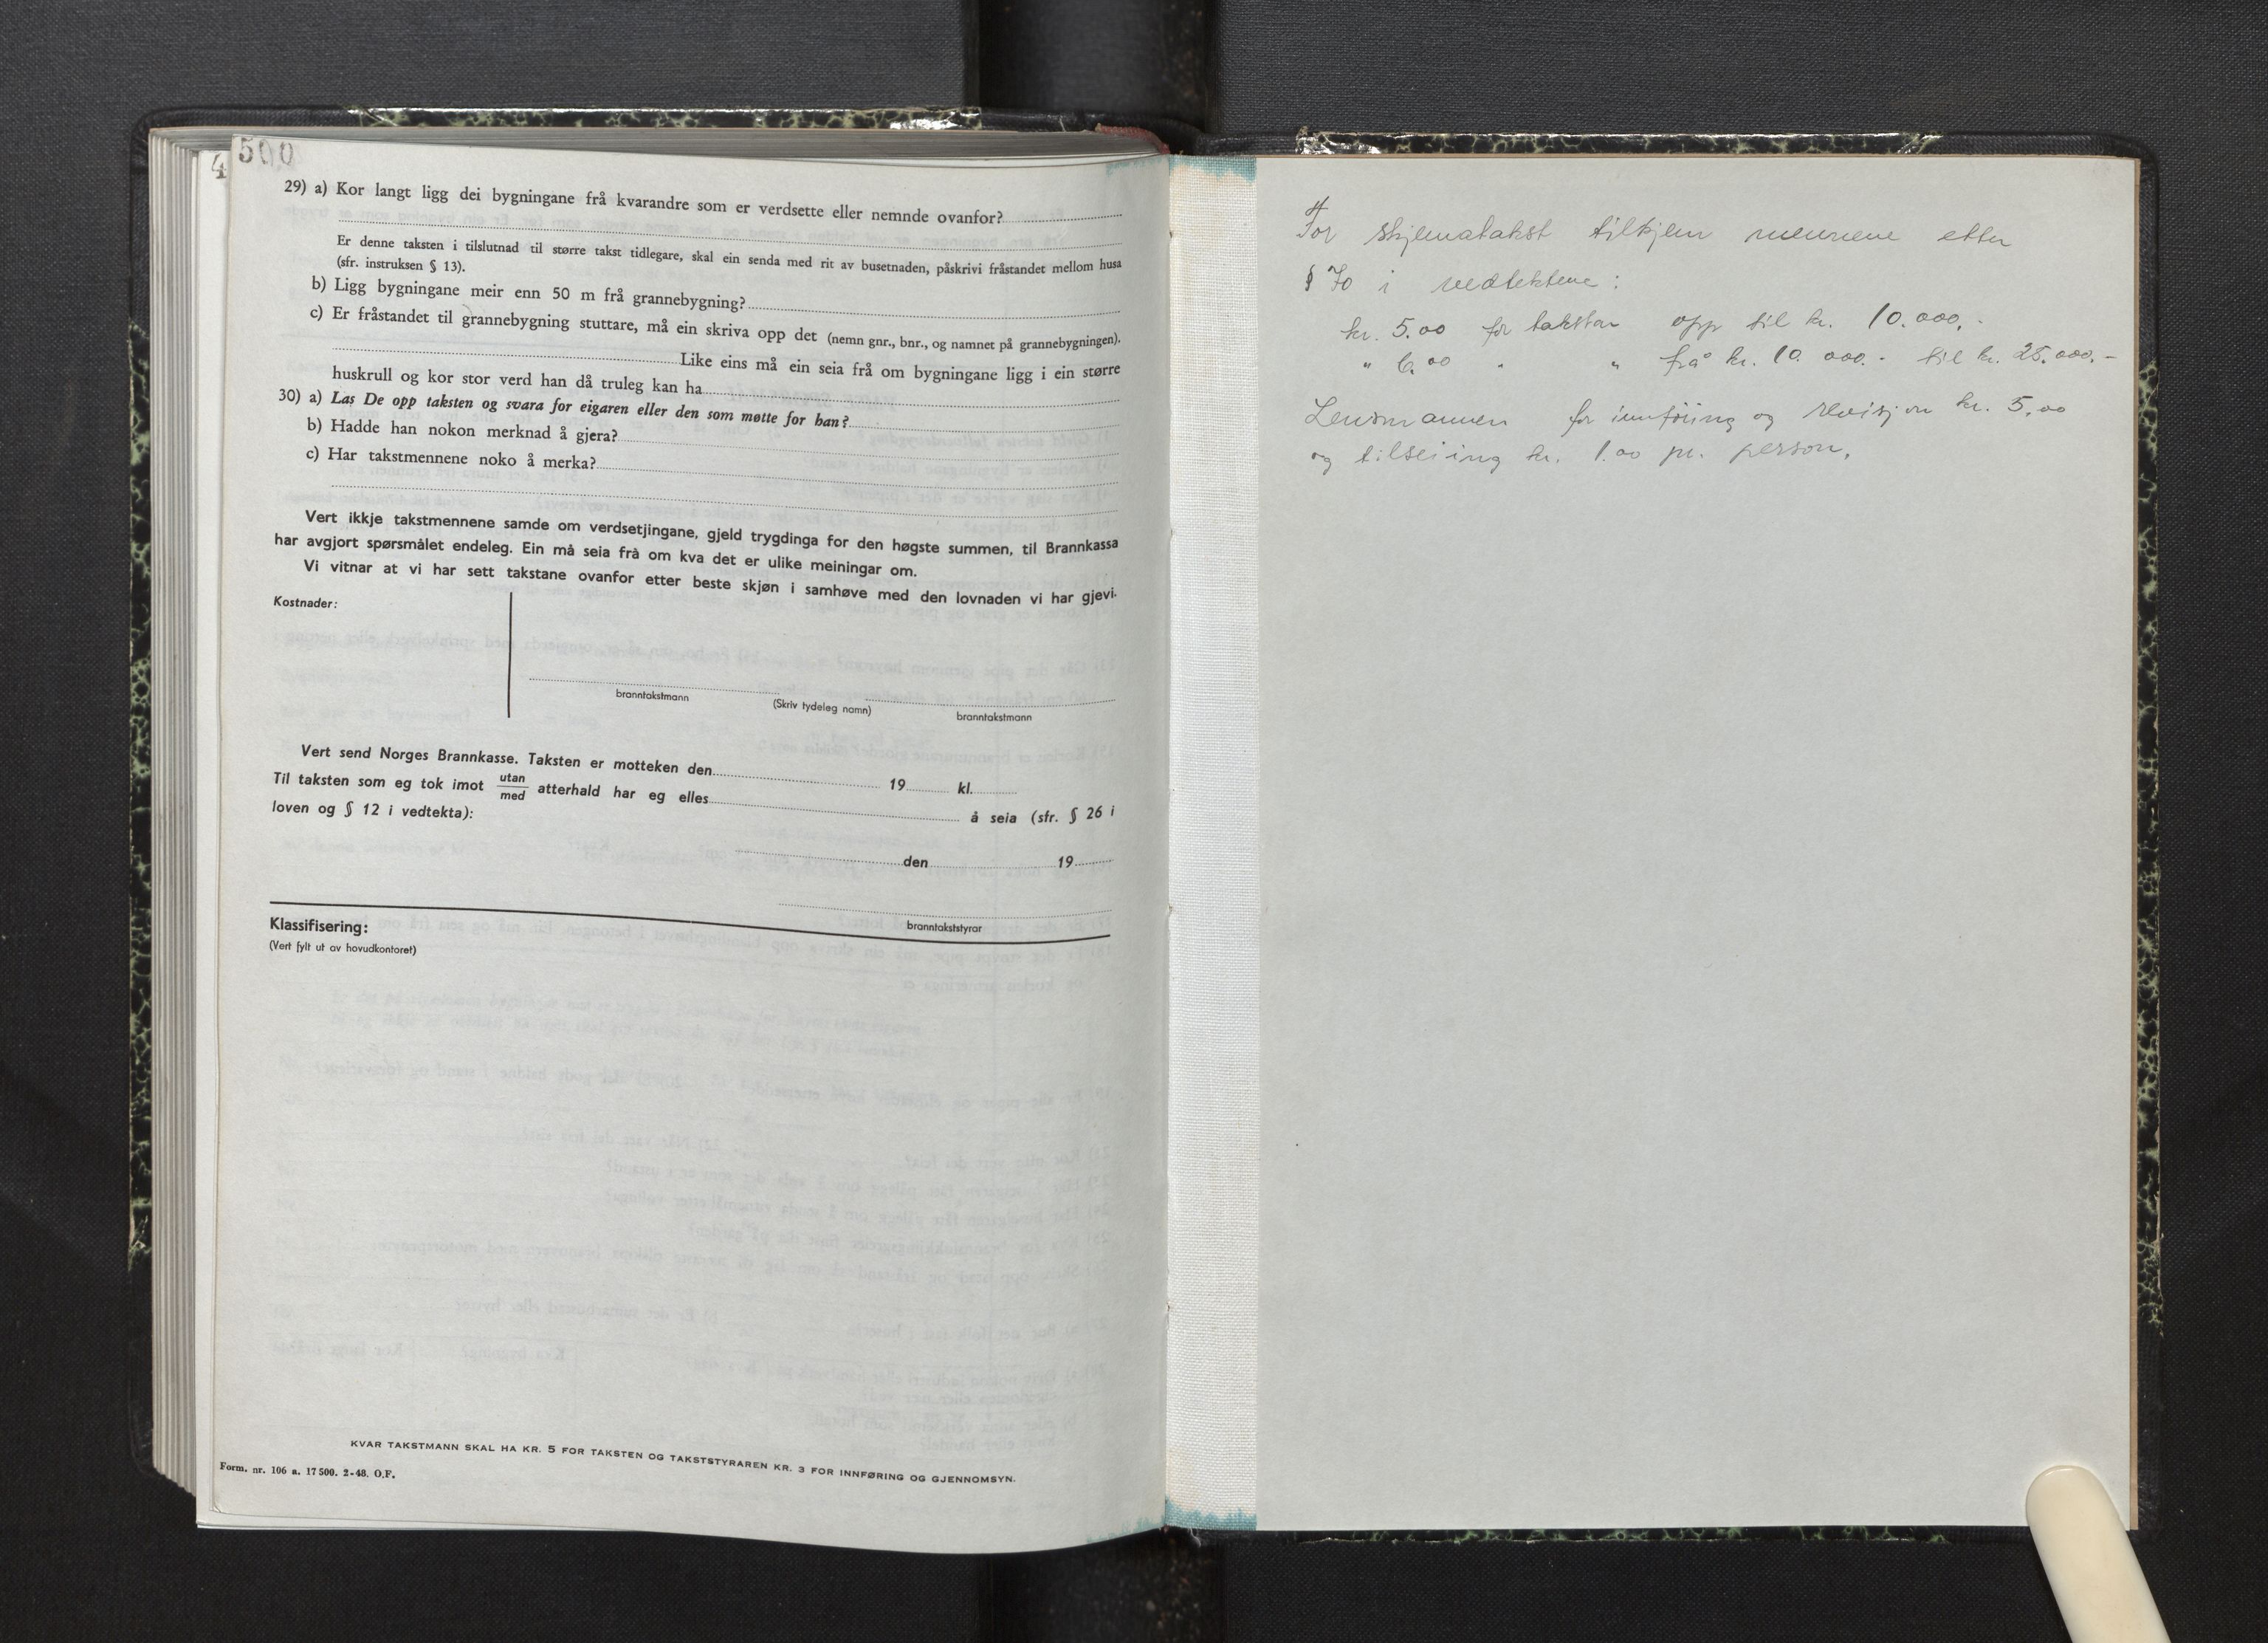 500
4
29) a) Kor langt ligg dei bygningane frå kvarandre som er verdsette eller nemnde ovanfor?
Er denne taksten i tilslutnad til større takst tidlegare, skal ein senda med rit av busetnaden, påskrivi fråstandet mellom husa
(sfr. instruksen § 13).
b) Ligg bygningane meir enn 50 m frå grannebygning?
c) Er fråstandet til grannebygning stuttare, må ein skriva opp det (nemn gnr., bnr., og namnet på grannebygningen).
Like eins må ein seia frå om bygningane ligg i ein større
huskrull og kor stor verd han då truleg kan ha
30) a) Las De opp taksten og svara for eigaren eller den som møtte for han?
b) Hadde han nokon merknad å gjera?
c) Har takstmennene noko å merka?
Vert ikkje takstmennene samde om verdsetjingane, gjeld trygdinga for den høgste summen, til Brannkassa
har avgjort spørsmålet endeleg. Ein må seia frà om kva det er ulike meiningar om.
Vi vitnar at vi har sett takstane ovanfor etter beste skjøn i samhøve med den lovnaden vi har gjevi.
Kostnader:
branntakstmann
(Skriv tydeleg namn)
branntakstmann
Vert send Norges Brannkasse. Taksten er motteken den 19 kl.
Til taksten som eg tok imot utan/med atterhald har eg elles å seia (sfr. § 26 i
loven og § 12 i vedtekta):
den 19
branntakststyrar
Klassifisering:
(Vert fylt ut av hovudkontoret)
KVAR TAKSTMANN SKAL HA KR. 5 FOR TAKSTEN OG TAKSTSTYRAREN KR. 3 FOR INNFØRING OG GJENNOMSYN.
Form. nr. 106 a. 17 500. 2-48. O.F.
For skjematakst tilkjem mennene etter
§ 70 i vedtektene:
kr. 5.00 for takstar opp til kr. 10.000.-
" 6.00 " " frå kr. 10.000.- til kr. 25.000.-
Lensmannen for innføring og revisjon kr. 5.00
og tilseiing kr. 1.00 pr. person.